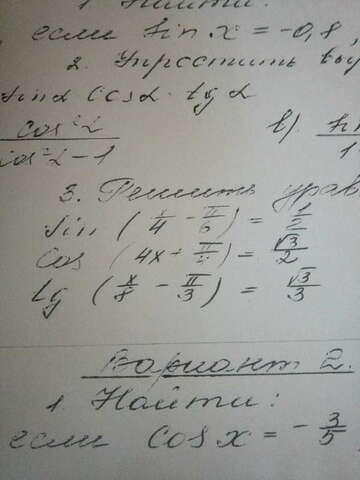 1. Найти:
если sin x = -0,8,
2. Упростить
sin α cos α · tg α
cos²α
cos²α - 1
в).
1
3. Решить
sin (x/4 - π/6) = 1/2
cos (4x + ) = √3/2
tg (x/8 - π/3) = √3/3
Вариант 2.
1. Найти:
если cos x = - 3/5,